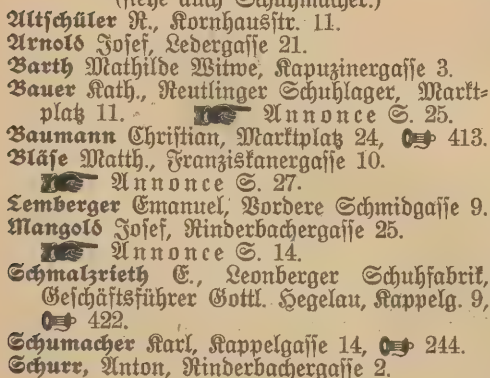 (siehe auch Schuhmacher.)
Altschüler R., Kornhausstr. 11.
Arnold Josef, Ledergasse 21.
Barth Mathilde Witwe, Kapuzinergasse 3.
Bauer Kath., Reutlinger Schuhlager, Markt-
platz 11. ☛ Annonce S. 25.
Baumann Christian, Marktplatz 24, 413.
Bläse Matth., Franziskanergasse 10.
☛ Annonce S. 27.
Lemberger Emanuel, Vordere Schmidgasse 9.
Mangold Josef, Rinderbachergasse 25.
☛ Annonce S. 14.
Schmalzrieth E., Leonberger Schuhfabrik,
Geschäftsführer Gottl. Hegelau, Kappelg. 9,
422.
Schumacher Karl, Kappelgasse 14, 244.
Schurr, Anton, Rinderbachergasse 2.